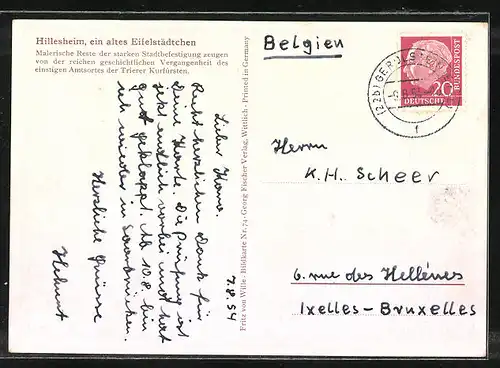 Hillesheim, ein altes Eifelstädtchen
Malerische Reste der starken Stadtbefestigung zeugen
von der reichen geschichtlichen Vergangenheit des
einstigen Amtsortes der Trierer Kurfürsten.
7.8.54
Lieber Hans.
Recht herzlichen Dank für
Deine Karte. Die Prüfung ist
jetzt endlich vorbei und hat
gut geklappt. Ab 10.8. bin
ich wieder in Saarbrücken.
Herzliche Grüsse
Helmut
Fritz von Wille - Bildkarte Nr. 74 - Georg Fischer Verlag, Wittlich - Printed in Germany
Belgien
(22b) GEROLSTEIN
20
DEUTSCHE
BUNDESPOST
f
Herrn
K.H. Scheer
6. rue des Hellénes
Ixelles-Bruxelles